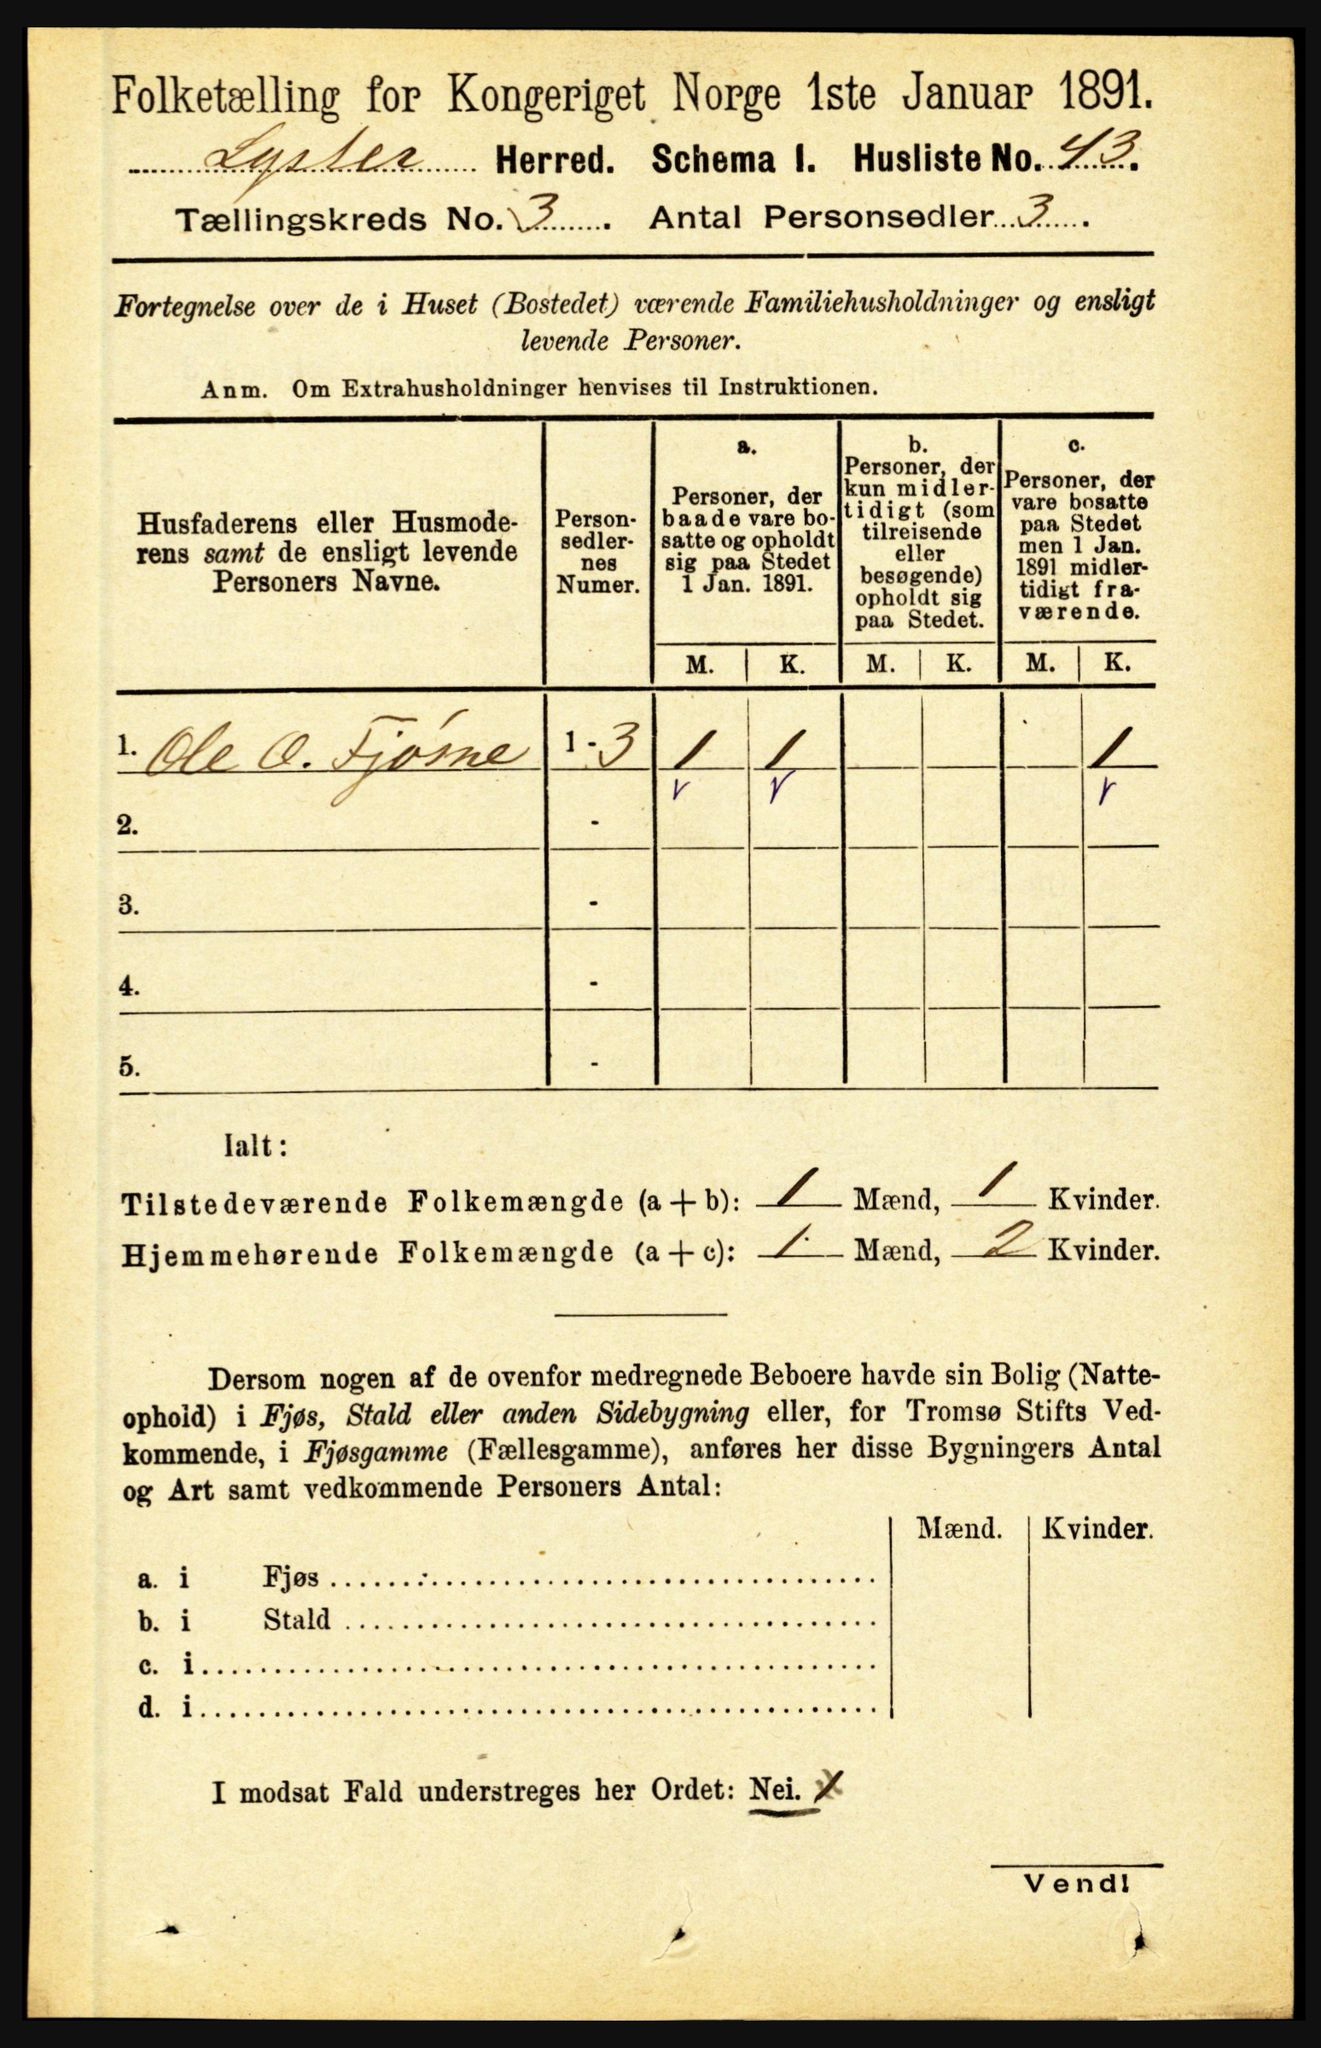 Folketælling for Kongeriget Norge 1ste Januar 1891.
Lyster Herred. Schema I. Husliste No. 43.
Tællingskreds No. 3. Antal Personsedler 3.
Fortegnelse over de i Huset (Bostedet) værende Familiehusholdninger og ensligt
levende Personer.
Anm. Om Extrahusholdninger henvises til Instruktionen.
Husfaderens eller Husmode-
rens samt de ensligt levende
Personers Navne.
Person-
sedler-
nes
Numer.
a.
Personer, der
baade vare bo-
satte og opholdt
sig paa Stedet
1 Jan. 1891.
b.
Personer, der
kun midler-
tidigt (som
tilreisende
eller
besøgende)
opholdt sig
paa Stedet.
c.
Personer, der
vare bosatte
paa Stedet
men 1 Jan.
1891 midler-
tidigt fra-
værende.
M. K. M. K. M. K.
1. Ole O. Fjøsne 1-3 1 1 1
2. -
3. -
4. -
5. -
Ialt:
Tilstedeværende Folkemængde (a + b): 1 Mænd, 1 Kvinder.
Hjemmehørende Folkemængde (a + c): 1 Mænd, 2 Kvinder.
Dersom nogen af de ovenfor medregnede Beboere havde sin Bolig (Natte-
ophold) i Fjøs, Stald eller anden Sidebygning eller, for Tromsø Stifts Ved-
kommende, i Fjøsgamme (Fællesgamme), anføres her disse Bygningers Antal
og Art samt vedkommende Personers Antal:
Mænd. Kvinder.
a. i Fjøs
b. i Stald
c. i
d. i
I modsat Fald understreges her Ordet: Nei.
Vend!